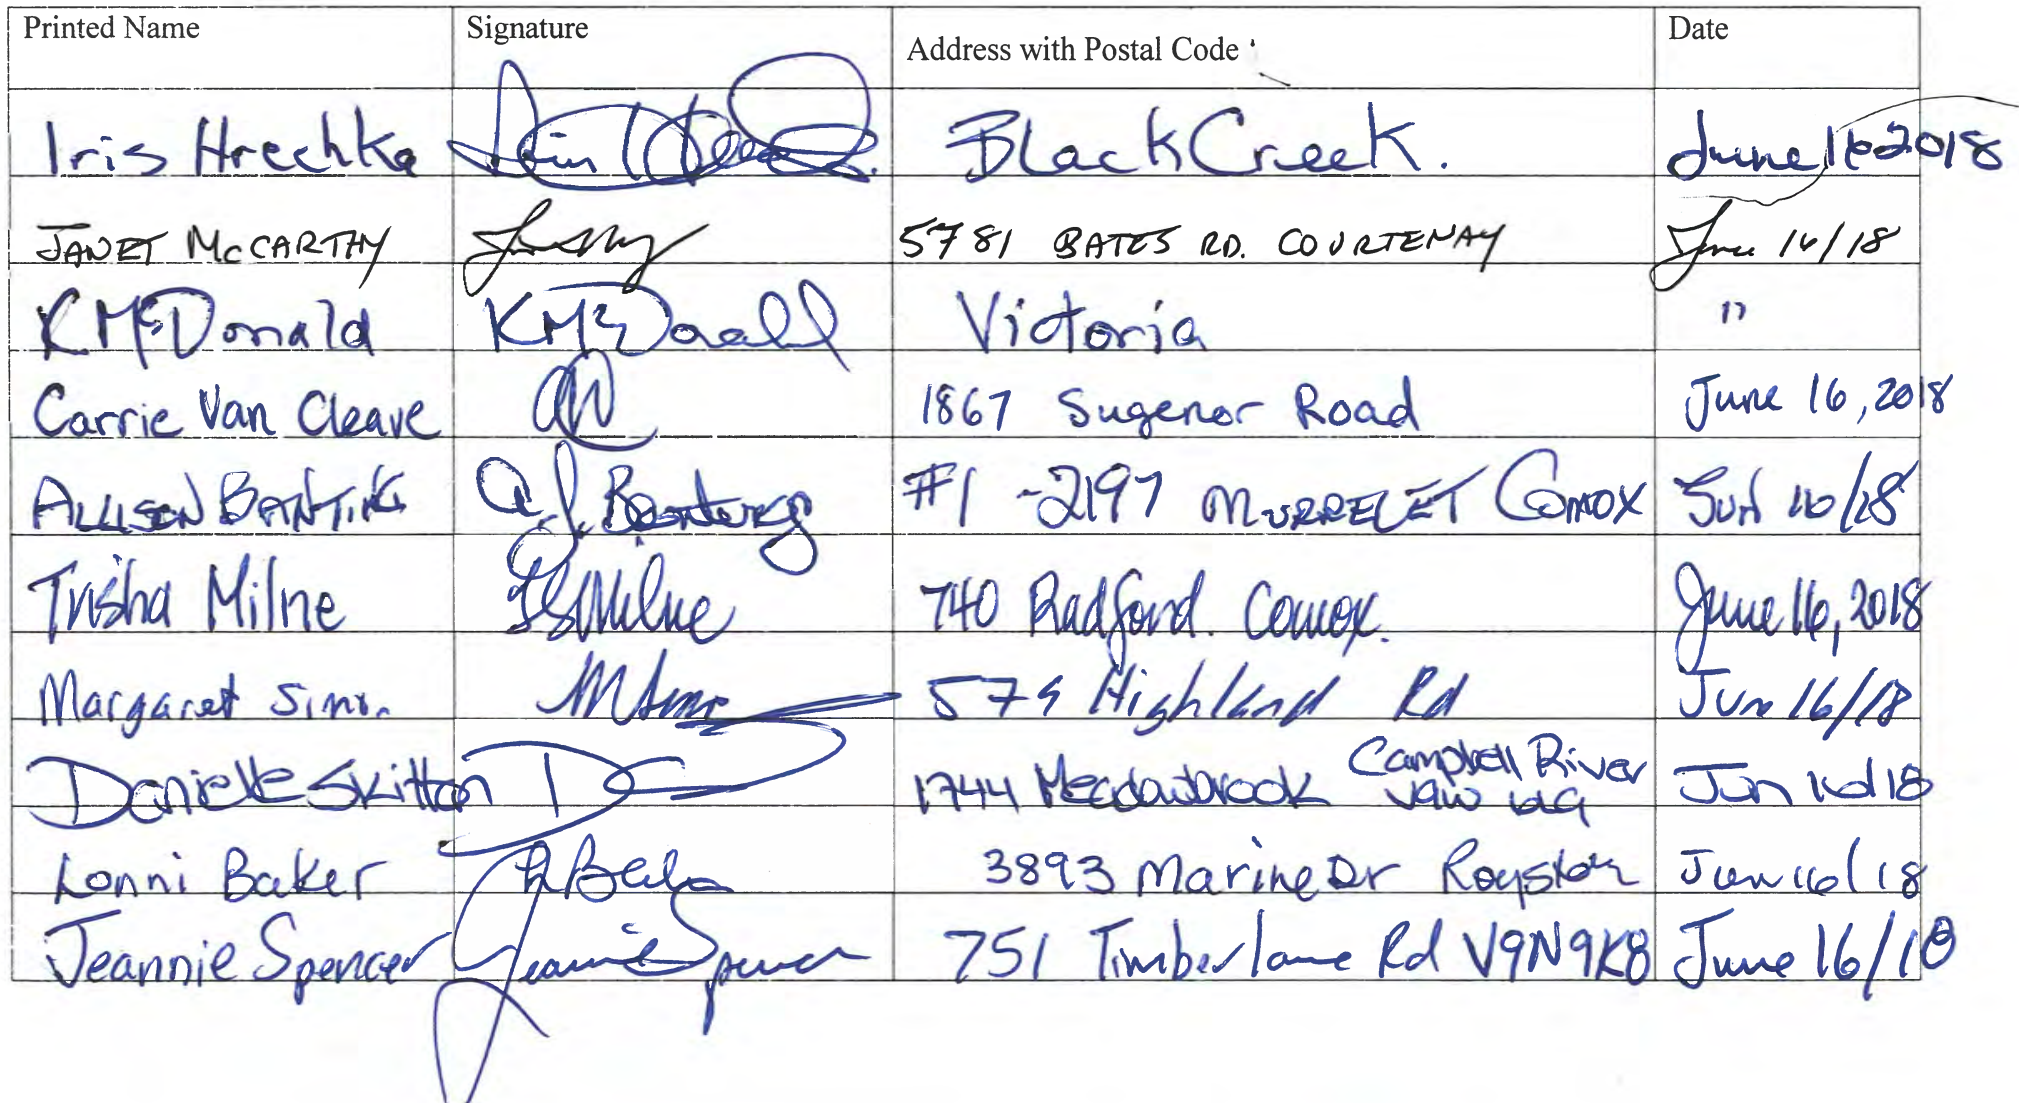 Printed Name Signature Address with Postal Code Date
Iris Hrechka Black Creek. June 16 2018
JANET McCARTHY 5781 BATES RD. COURTENAY June 16/18
K McDonald K McDonald Victoria "
Carrie Van Cleave 1867 Sugenor Road June 16, 2018
ALLISON BANTING A.J. Banting #1 -2197 MURRELET COMOX JUN 16/18
Trisha Milne TSMilne 740 Radford. Comox. June 16, 2018
Margaret 579 Highland Rd Jun 16/18
Danielle Skitton 1744 Meadowbrook Campbell River Jun 16 18
V9W
Lonni Baker 3893 Marine Dr Royston Jun 16/18
Jeannie Spencer Jeannie Spencer 751 Timberlane Rd V9N9K8 June 16/18